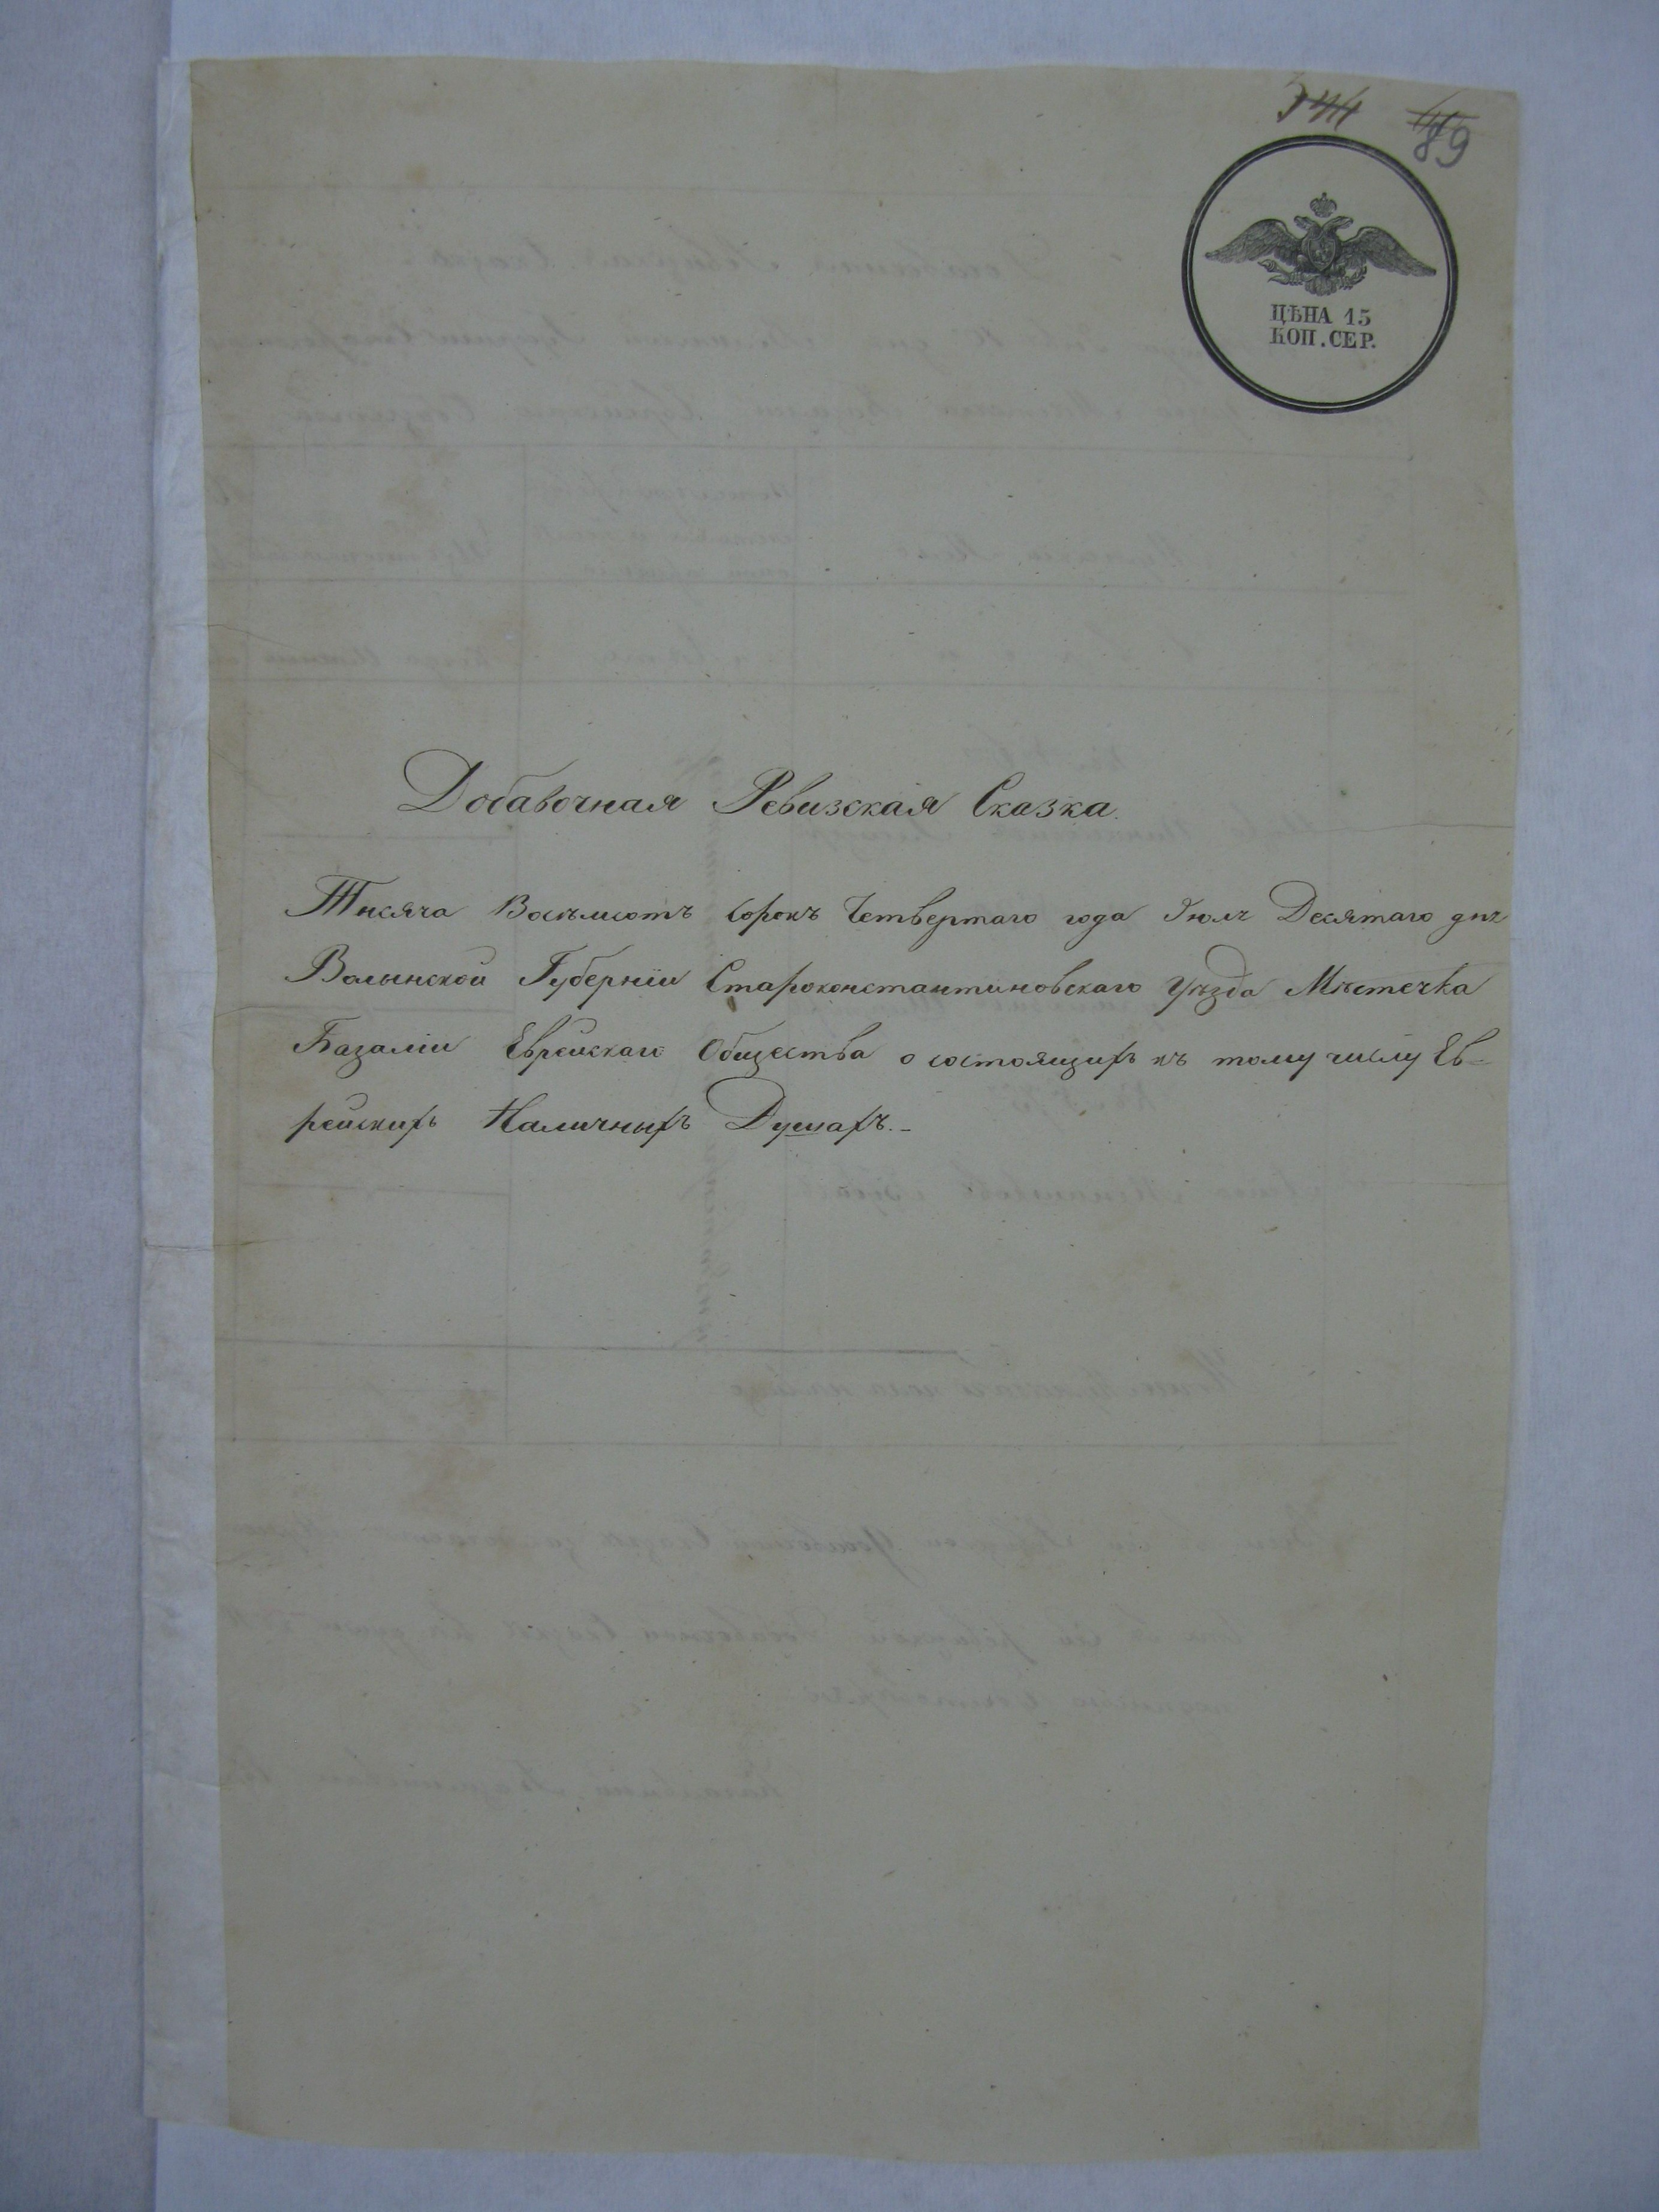 89
ЦѢНА 15
КОП. СЕР.
Добавочная Ревизская Сказка.
Тысяча Восемьсотъ Сорокъ Четвертаго года Іюля Десятаго дня
Волынской Губерніи Староконстантиновскаго Уѣзда Мѣстечка
Базаліи Еврейскаго Общества о состоящихъ къ тому числу Ев-
рейскихъ Наличныхъ Душахъ.-